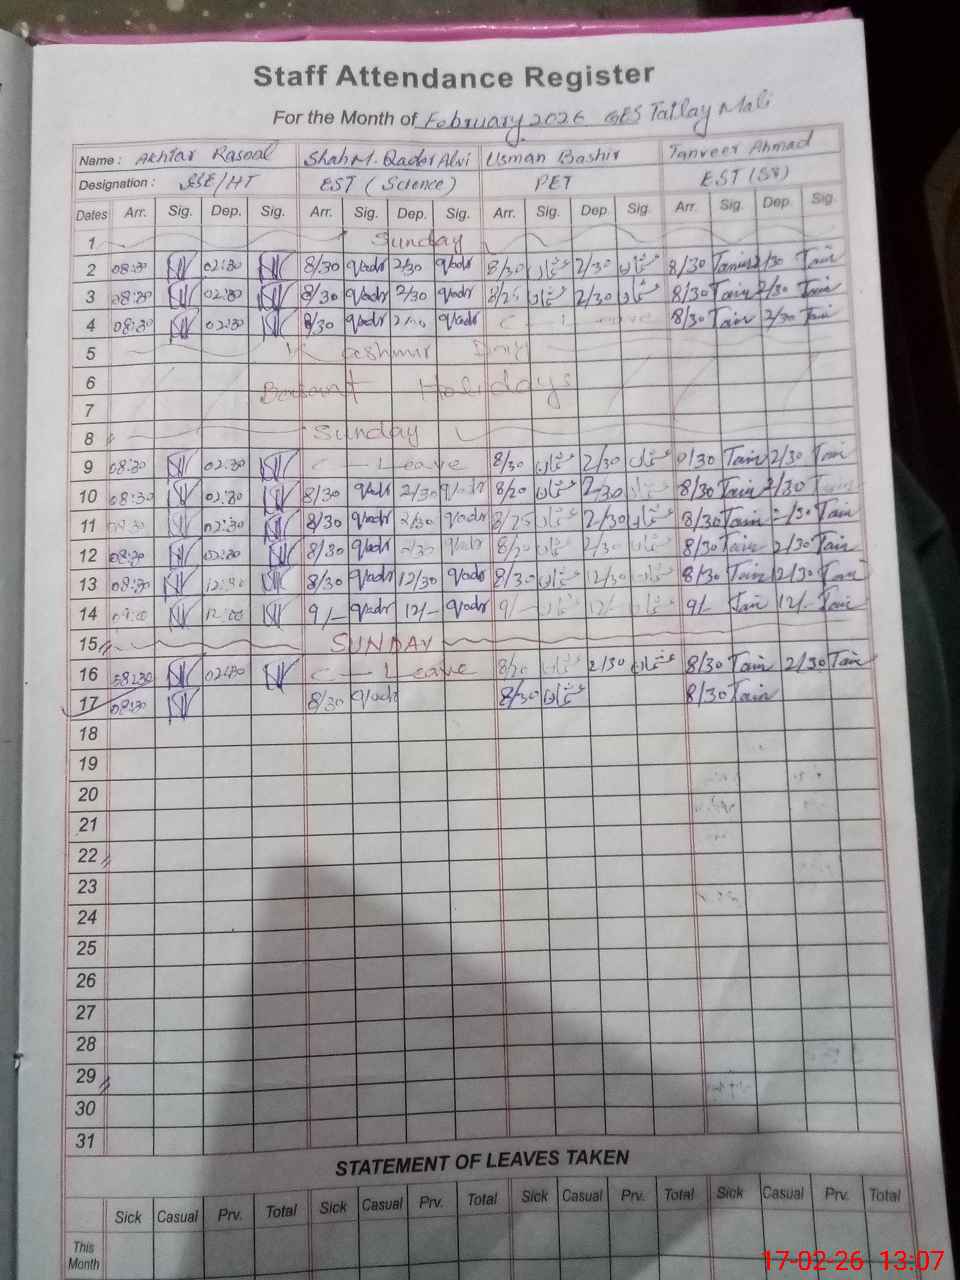 Staff Attendance Register
For the Month of February 2026 GES Tatlay Mali
Name : Akhtar Rasool Shah M. Qader Alvi Usman Bashir Tanveer Ahmad
Designation : SSE/HT EST (Science) PET EST (SV)
Dates Arr. Sig. Dep. Sig. Arr. Sig. Dep. Sig. Arr. Sig. Dep. Sig. Arr. Sig. Dep. Sig.
1 Sunday
2 08:30 02:30 8/30 Qadr 2/30 Qadr 8/30 عثمان 2/30 عثمان 8/30 2/30 Tair
3 08:30 02:30 8/30 Qadr 2/30 Qadr 8/25 عثمان 2/30 عثمان 8/30 Tair 2/30 Tair
4 08:30 02:30 8/30 Qadr Qadr C - Leave 8/30 Tair 2/30 Tair
5 Kashmir Day
6 Basant Holidays
7
8 Sunday
9 08:30 02:30 C - Leave 8/30 عثمان 2/30 عثمان Tair 2/30 Tair
10 08:30 02:30 8/30 Qadr 2/30 Qadr 8/20 عثمان 2/30 عثمان 8/30 Tair 2/30 Tair
11 02:30 8/30 Qadr 2/30 Qadr 8/25 عثمان 2/30 عثمان 8/30 Tair Tair
12 08:30 02:30 8/30 Qadr 2/30 Qadr عثمان 2/30 عثمان 8/30 Tair 2/30 Tair
13 08:30 12:30 8/30 Qadr 12/30 Qadr 8/30 عثمان 12/30 عثمان 8/30 Tair 12/30 Tair
14 09:00 12:00 9/- Qadr 12/- Qadr 9/- عثمان 12/- عثمان 9/- Tair 12/- Tair
15 SUNDAY
16 08:30 02:30 C - Leave 8/20 عثمان 2/30 عثمان 8/30 Tair 2/30 Tair
17 08:30 8/30 Qadr 8/30 عثمان 8/30 Tair
18
19
20
21
22
23
24
25
26
27
28
29
30
31
STATEMENT OF LEAVES TAKEN
Sick Casual Prv. Total Sick Casual Prv. Total Sick Casual Prv. Total Sick Casual Prv. Total
This
Month
17-02-26 13:07